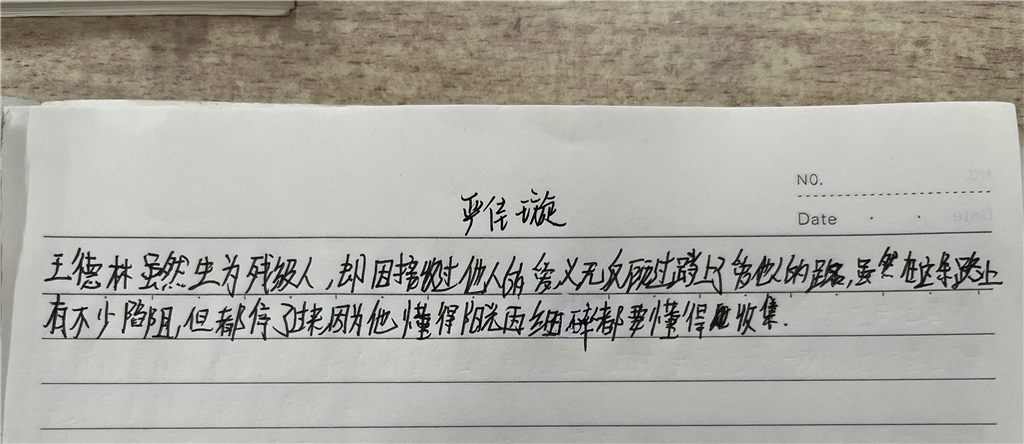 NO.
严佳璇
Date
王德林虽然生为残级人,却因接收过他人的爱,义无反顾过踏上了爱他人的路,虽然在这条路上
有不少险阻,但都停了过来因为他懂得阳光因细碎都要懂得收集.